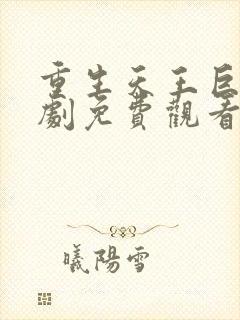 重生天王巨
劇免費觀看
曦陽雪